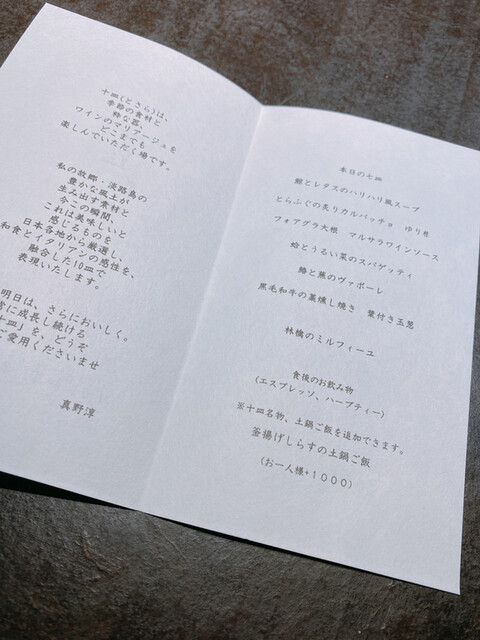 十皿(とさら)は、
季節の食材と
粋な器、
ワインのマリアージュを
どこまでも
楽しんでいただく場です。
私の故郷・淡路島の
豊かな風土が
生み出す食材と
今この瞬間、
これは美味しいと
感じるものを
日本各地から厳選し、
和食とイタリアンの感性を、
融合した10皿で
表現いたします。
明日は、さらにおいしく。
常に成長し続ける
十皿」を、どうぞ
ご愛用くださいませ
真野淳
本日の七皿
とレタスのハリハリ風スープ
とらふぐの炙りカルパッチョ ゆり根
フォアグラ大根 マルサラワインソース
蛤とうるい菜のスパゲッティ
と蕪のヴァポーレ
黒毛和牛の藁燻し焼き 葉付き玉葱
林檎のミルフィーユ
食後のお飲み物
(エスプレッソ、ハーブティー)
※十皿名物、土鍋ご飯を追加できます。
釜揚げしらすの土鍋ご飯
(お一人様+1000)